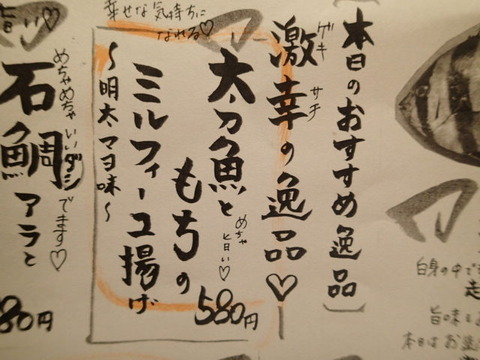 白身の中で
旨味も
本日はお造
【本日のおすすめ逸品】
ゲキ サチ
激幸の逸品♡
幸せな気持ちに
なれる♡
太刀魚と
めちゃ旨い♡
580円
もちの
ミルフィーユ揚げ
～明太マヨ味～
めちゃめちゃいいダシでます♡
石鯛アラと
80円
旨い♡